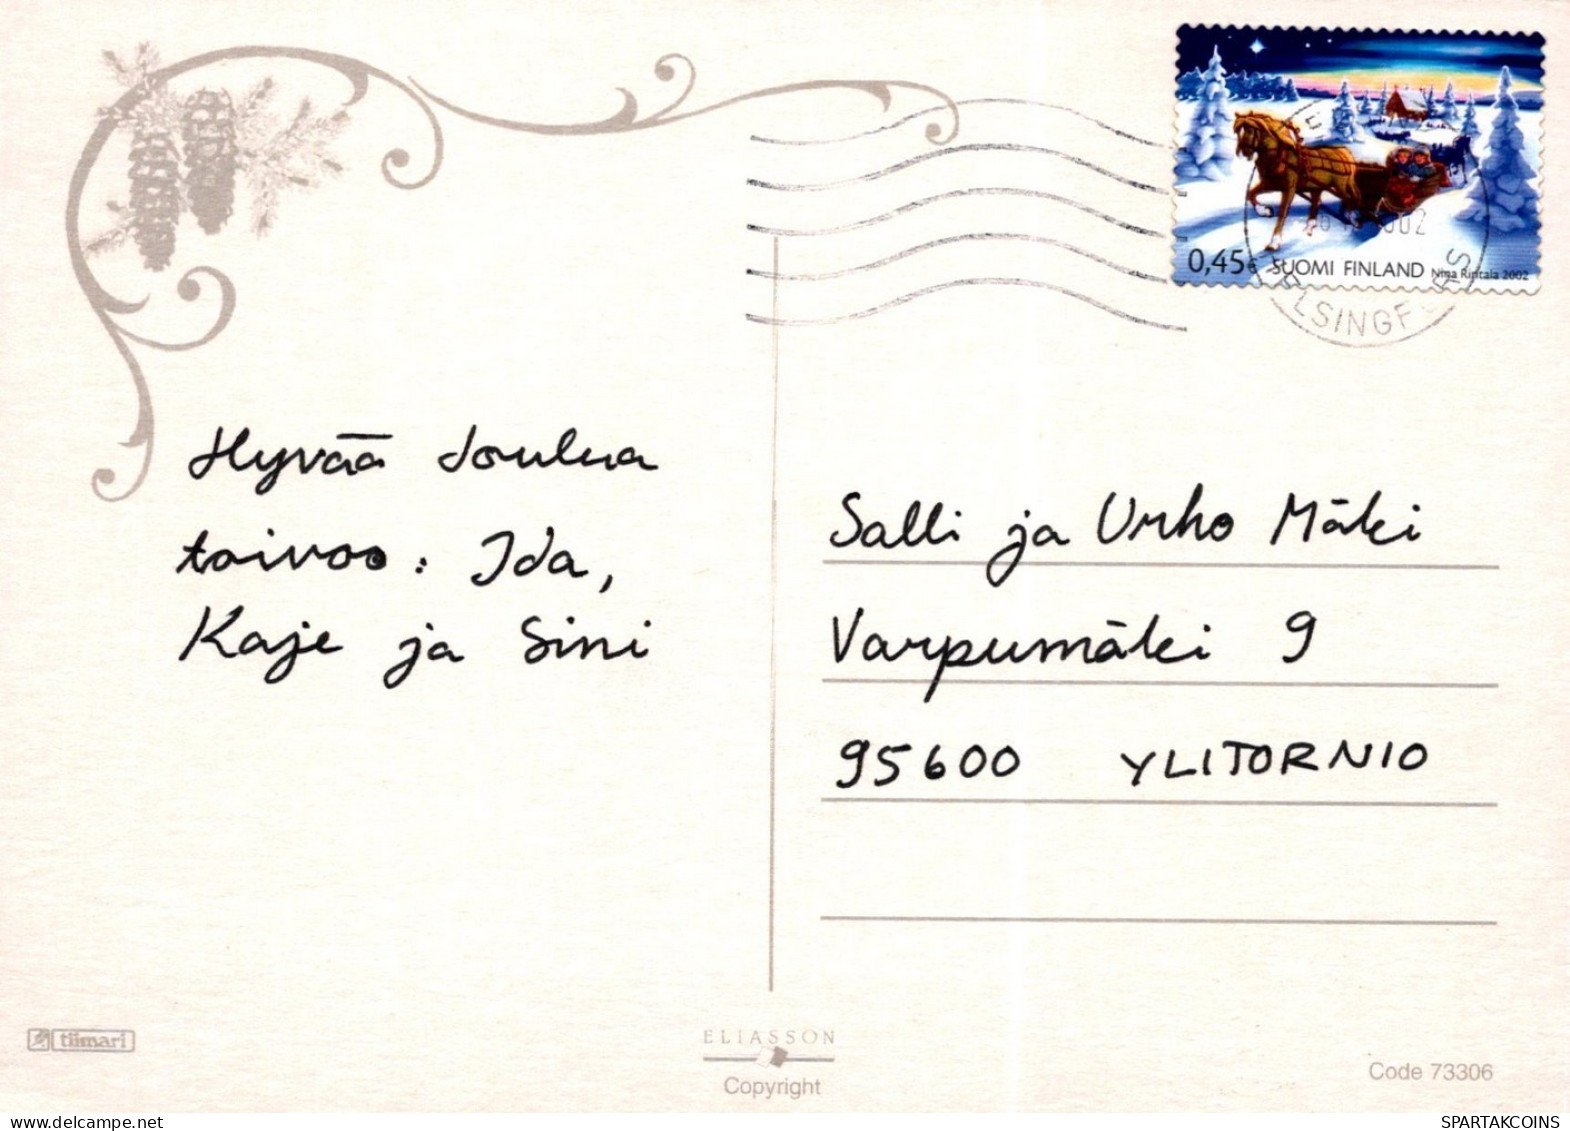 0,45€ SUOMI FINLAND Nina Rintala 2002
Hyvää Joulua
toivoo: Ida,
Kaje ja Sini
Salli ja Urho Mäki
Varpumäki 9
95600 YLITORNIO
tiimari
ELIASSON
Copyright
Code 73306
SPARTAKCOINS